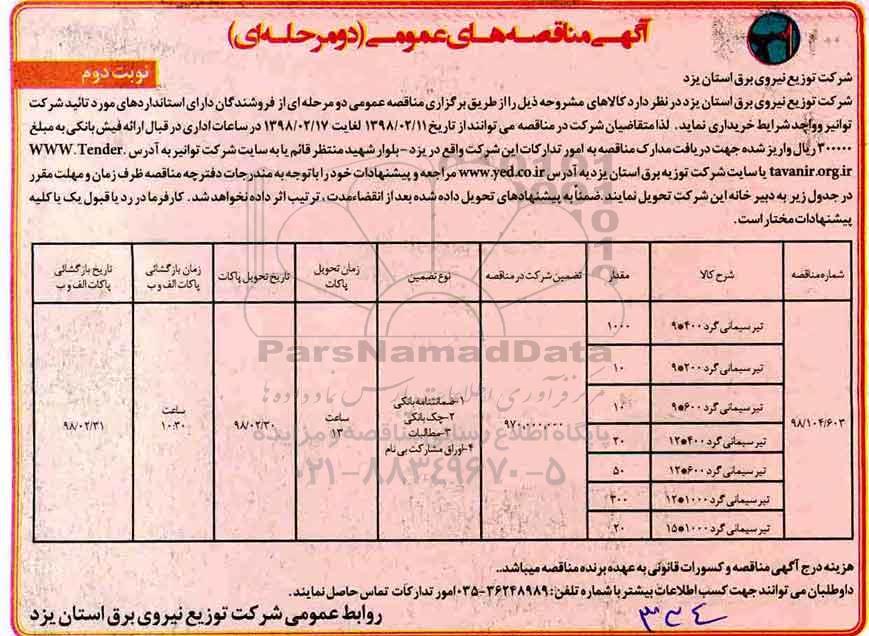 آگهی مناقصه های عمومی (دومرحله ای)
نوبت دوم
شرکت توزیع نیروی برق استان یزد
شرکت توزیع نیروی برق استان یزد در نظر دارد کالاهای مشروحه ذیل را از طریق برگزاری مناقصه عمومی دو مرحله ای از فروشندگان دارای استانداردهای مورد تائید شرکت
توانیر وواجد شرایط خریداری نماید. لذا متقاضیان شرکت در مناقصه می توانند از تاریخ ۱۳۹۸/۰۲/۱۱ لغایت ۱۳۹۸/۰۲/۱۷ در ساعات اداری در قبال ارائه فیش بانکی به مبلغ
۳۰۰۰۰۰ ریال واریز شده جهت دریافت مدارک مناقصه به امور تدارکات این شرکت واقع در یزد - بلوار شهید منتظر قائم یا به سایت شرکت توانیر به آدرس WWW.Tender.
tavanir.org.ir یا سایت شرکت توزیه برق استان یزد به آدرس www.yed.co.ir مراجعه و پیشنهادات خود را با توجه به مندرجات دفترچه مناقصه ظرف زمان و مهلت مقرر
در جدول زیر به دبیر خانه این شرکت تحویل نمایند. ضمنا به پیشنهادهای تحویل داده شده بعد از انقضاء مدت، ترتیب اثر داده نخواهد شد. کارفرما در رد یا قبول یک یا کلیه
پیشنهادات مختار است.
شماره مناقصه شرح کالا مقدار تضمین شرکت در مناقصه نوع تضمین زمان تحویل پاکات تاریخ تحویل پاکات زمان بازگشائی پاکات الف و ب تاریخ بازگشائی پاکات الف و ب
تیر سیمانی گرد ۴۰۰*۹ ۱۰۰۰
تیر سیمانی گرد ۲۰۰*۹ ۱۰
تیر سیمانی گرد ۶۰۰*۹ ۱۰
تیر سیمانی گرد ۴۰۰*۱۲ ۲۰
تیر سیمانی گرد ۶۰۰*۱۲ ۵۰
تیر سیمانی گرد ۱۰۰۰*۱۲ ۳۰۰
تیر سیمانی گرد ۱۰۰۰*۱۵ ۲۰
۹۸/۱۰۴/۶۰۳
۹۷۰.۰۰۰.۰۰۰
۱-ضمانتنامه بانکی
۲-چک بانکی
۳-مطالبات
۴-اوراق مشارکت بی نام
ساعت
۱۳
۹۸/۰۲/۳۰
ساعت
۱۰:۳۰
۹۸/۰۲/۳۱
ParsNamadData
مرکز فرآوری اطلاعات پارس نماد داده ها
پایگاه اطلاع رسانی مناقصه و مزایده
۰۲۱-۸۸۳۴۹۶۷۰-۵
هزینه درج آگهی مناقصه و کسورات قانونی به عهده برنده مناقصه میباشد..
داوطلبان می توانند جهت کسب اطلاعات بیشتر با شماره تلفن: ۳۶۲۴۸۹۸۹-۰۳۵ امور تدارکات تماس حاصل نمایند.
روابط عمومی شرکت توزیع نیروی برق استان یزد
۳۳۴